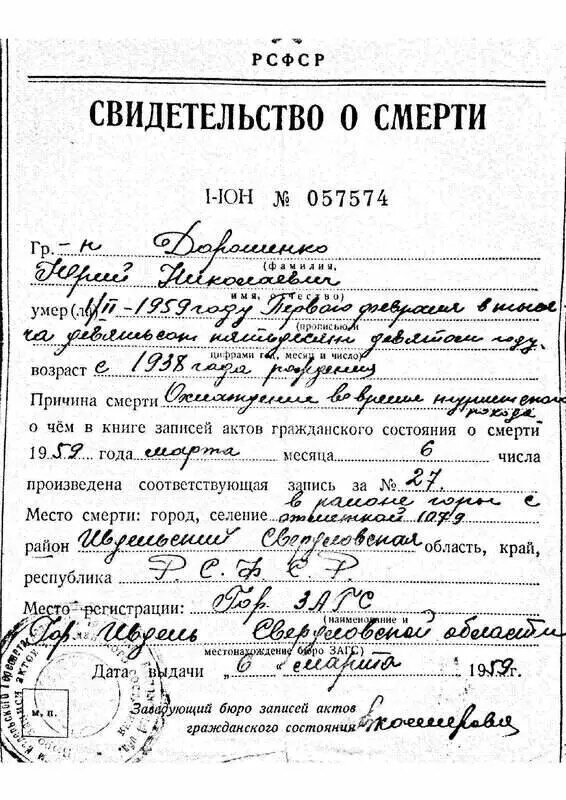 РСФСР
СВИДЕТЕЛЬСТВО О СМЕРТИ
I-ЮН № 057574
Гр.-н Дорошенко
(фамилия,
Юрий Николаевич
имя, отчество)
умер (ла) 1/II-1959 году Первого февраля в тыся-
(прописью и
ча девятьсот пятьдесят девятом году.
цифрами год, месяц и число)
возраст с 1938 года рождения
Причина смерти Охлаждение во время туристского
похода
о чём в книге записей актов гражданского состояния о смерти
1959 года марта месяца 6 числа
произведена соответствующая запись за № 27.
в районе горы с
Место смерти: город, селение отметкой 1079
район Ивдельский Свердловская область, край,
республика Р. С. Ф. С. Р.
Место регистрации: Гор. ЗАГС
(наименование и
Гор. Ивдель Свердловской области
местонахождение бюро ЗАГС)
Дата выдачи „6 " марта 1959г.
м. п.
Заведующий бюро записей актов
гражданского состояния